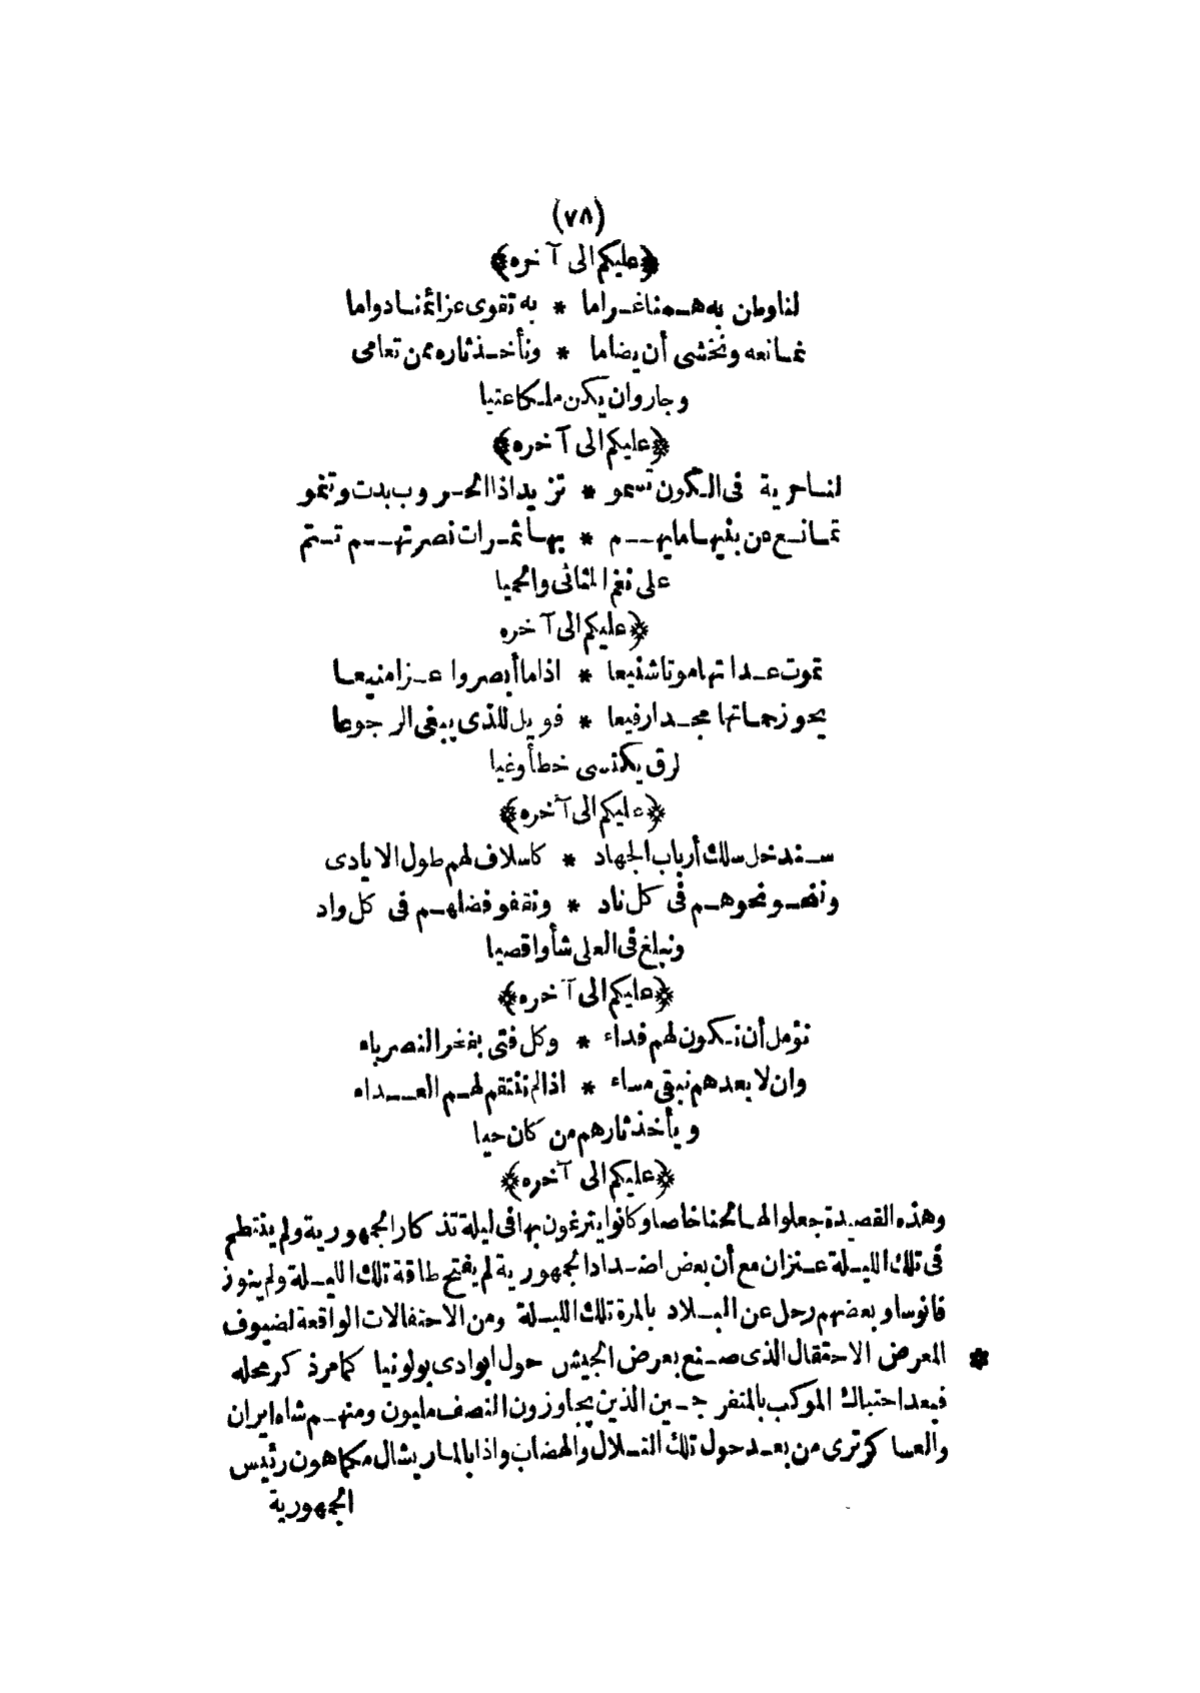 (٧٨)
﴿عليكم الى آخره﴾
لنا وطن به همنا غراما * به تقوى عزائمنا دواما
نمانعه ونخشى أن يضاما * ونأخذ ثاره ممن تعامى
وجار وان يكن ملكا عتيا
﴿عليكم الى آخره﴾
لنا حرية فى الكون تسمو * تزيد اذا الحروب بدت وتنمو
تمانع من بنيها ما يهم * بها ثمرات نصرتهم تتم
على نغم المثانى والحميا
﴿عليكم الى آخره
تموت عداتها موتا شنيعا * اذا ما أبصروا عزا منيعا
يحوز حماتها مجدا رفيعا * فويل للذى يبغى الرجوعا
لرق يكتسى خطأ وغيا
﴿عليكم الى آخره﴾
سندخل سلك أرباب الجهاد * كاسلاف لهم طول الايادى
وننحو نحوهم فى كل ناد * ونقفو فضلهم فى كل واد
ونبلغ فى العلى شأوا قصيا
﴿عليكم الى آخره﴾
نؤمل أن نكون لهم فداء * وكل فتى بفخر النصر باء
وان لا بعدهم نبقى مساء * اذا لم ننتقم لهم العداء
ويأخذ ثارهم من كان حيا
﴿عليكم الى آخره﴾
وهذه القصيدة جعلوا لها لحنا خاصا وكانوا يترنمون بها فى ليلة تذكار الجمهورية ولم ينتطم
فى تلك الليلة عنزان مع أن بعض اضداد الجمهورية لم يفتح طاقة تلك الليلة ولم ينور
فانوسا وبعضهم رحل عن البلاد بالمرة تلك الليلة ومن الاحتفالات الواقعة لضيوف
* المعرض الاحتفال الذى صنع بعرض الجيش حول ابوادى بولونيا كما مر ذكر محله
فبعد احتباك الموكب بالمتفرجين الذين يجاوزون النصف مليون ومنهم شاه ايران
والعساكر ترى من بعد حول تلك التلال والهضاب واذا بالماريشال مكماهون رئيس
الجمهورية